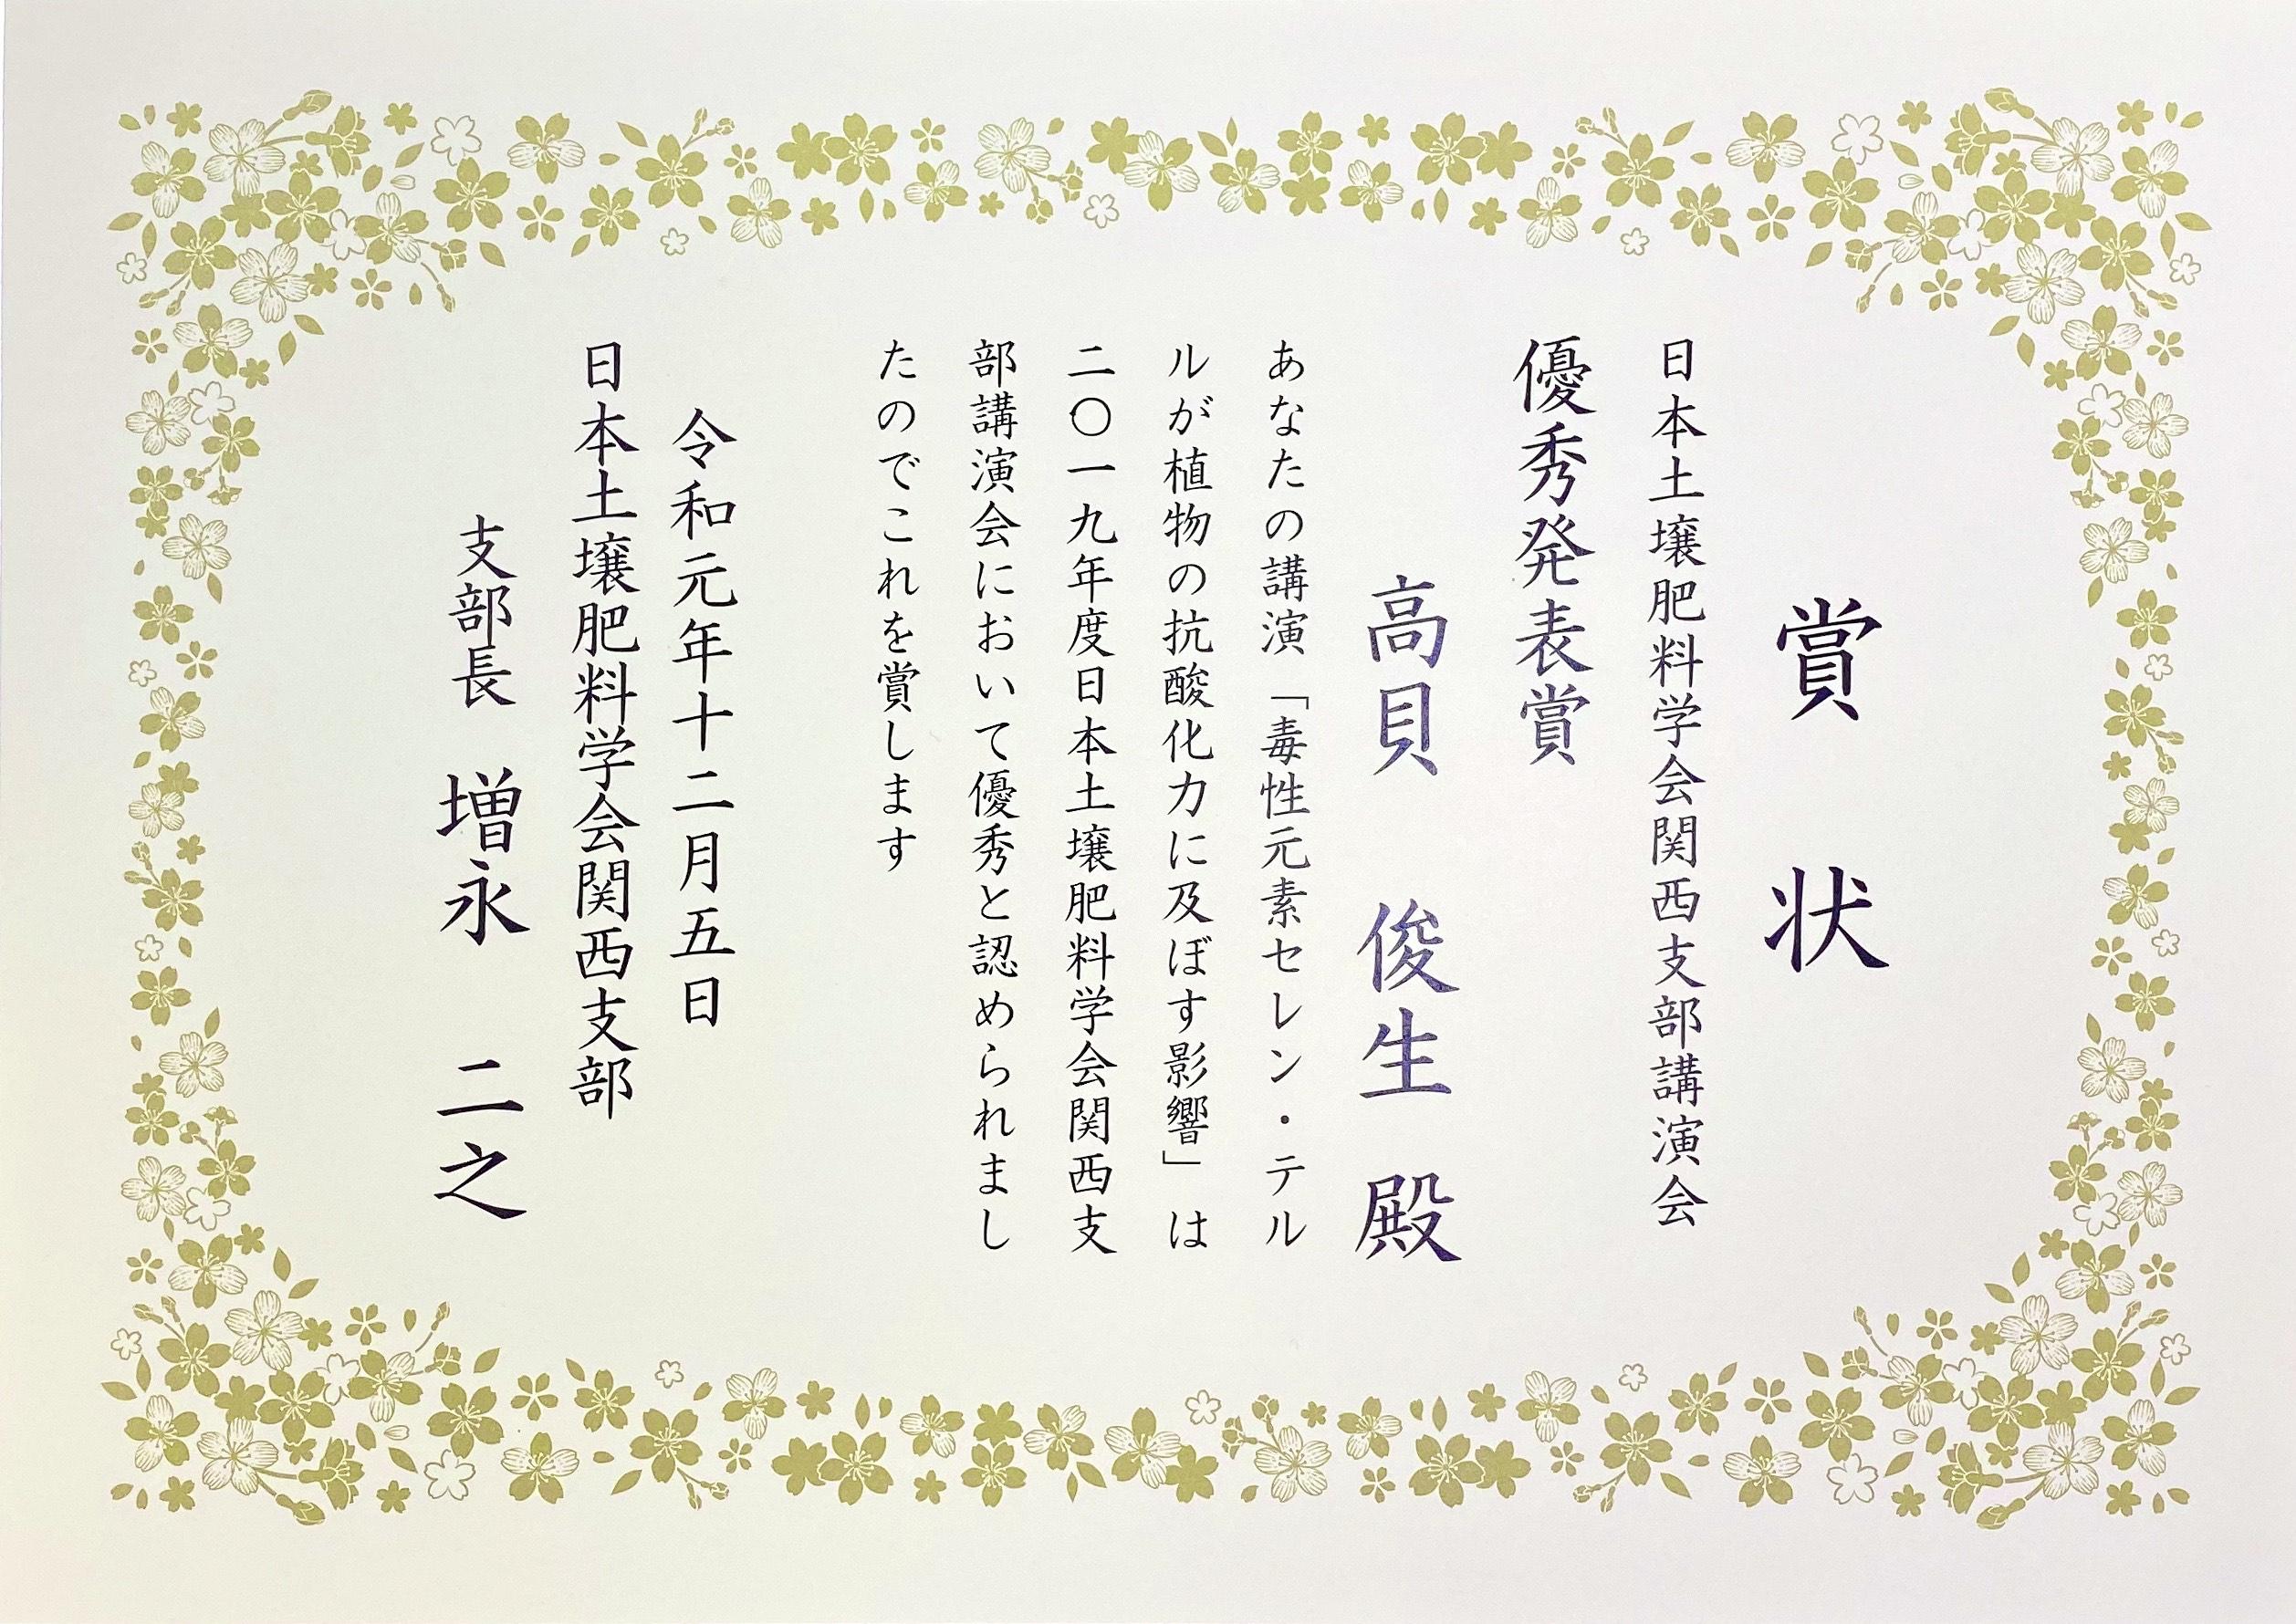 賞状
日本土壌肥料学会関西支部講演会
優秀発表賞
高貝 俊生 殿
あなたの講演「毒性元素セレン・テル
ルが植物の抗酸化力に及ぼす影響」は
二〇一九年度日本土壌肥料学会関西支
部講演会において優秀と認められまし
たのでこれを賞します
令和元年十二月五日
日本土壌肥料学会関西支部
支部長 増永 二之